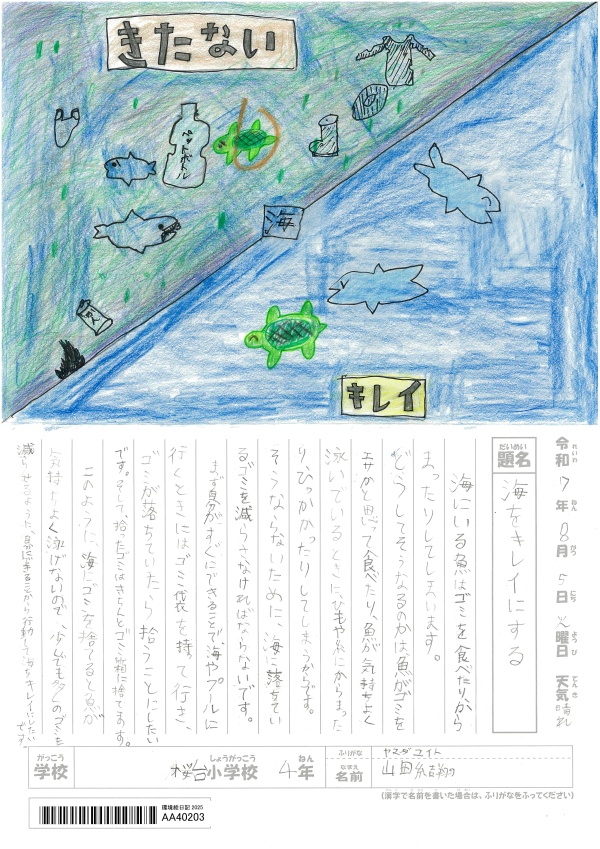 きたない
ペットボトル
海
かん
キレイ
令和7年8月5日火曜日 天気 晴れ
れいわ ねん がつ にち ようび てんき
だいめい
題名
海をキレイにする
海にいる魚はゴミを食べたり、から
まったりしてしまいます。
どうしてそうなるのかは、魚がゴミを
エサかと思って食べたり、魚が気持ちよく
泳いでいるときに、ひもや糸にからまった
りひっかかったりしてしまうからです。
そうならないために、海に落ちてい
るゴミを減らさなければならないです。
まず自分がすぐにできることで、海やプールに
行くときにはゴミ袋を持って行き、
ゴミが落ちていたら拾うことにしたい
です。そして、拾ったゴミはきちんとゴミ箱に捨てます。
このように、海にゴミを捨てると魚が
気持ちよく泳げないので、少しでも多くのゴミを
減らせるように、自分にできることから行動して海をキレイにしたい
です。
がっこう
学校
桜台小学校 4年
しょうがっこう ねん
ふりがな
ヤマダ ユイト
なまえ
名前
山田
(漢字で名前を書いた場合は、ふりがなをふってください)
環境絵日記 2025
AA40203